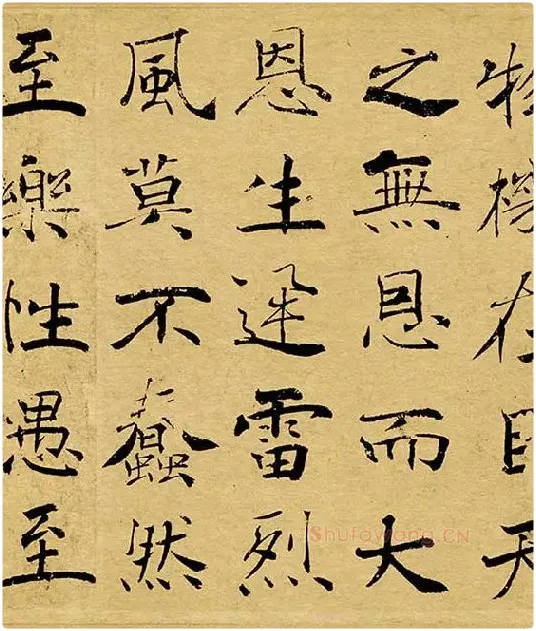 物機在目天
之無恩而大
恩生迅雷烈
風莫不蠢然
至樂性愚至
ShufaWang.CN